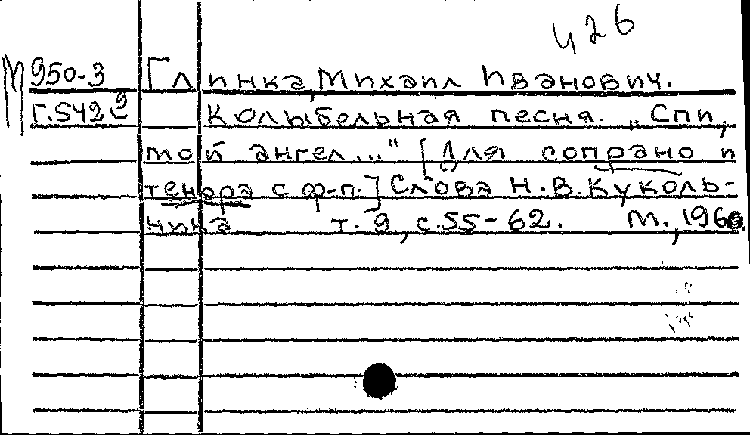 426
М 950-3 Глинка, Михаил Иванович.
Г.542е Колыбельная песня. "Спи,
мой ангел..." [Для сопрано и
тенора с ф-п.] Слова Н.В.Куколь-
ника т. 9, с.55-62. М., 1960.